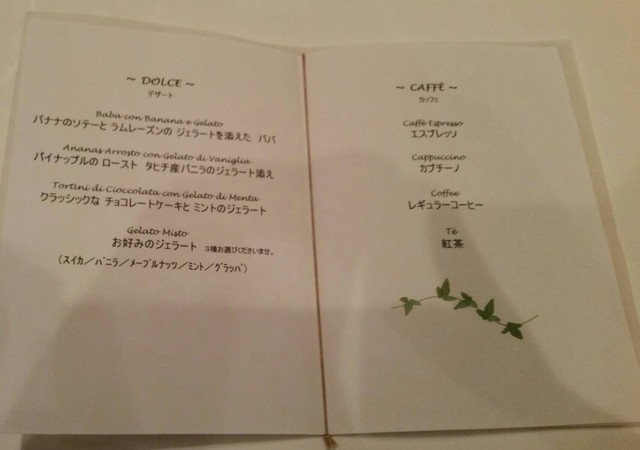 ~ DOLCE ~
デザート
Baba con Banana e Gelato
バナナのソテーと ラムレーズンの ジェラートを添えた ババ
Ananas Arrosto con Gelato di Vaniglia
パイナップルの ロースト タヒチ産バニラのジェラート添え
Tortini di Cioccolata con Gelato di Menta
クラッシックな チョコレートケーキと ミントのジェラート
Gelato Misto
お好みのジェラート 3種お選びくださいませ。
(スイカ/バニラ/メープルナッツ/ミント/グラッパ)
~ CAFFÈ ~
カッフェ
Caffè Espresso
エスプレッソ
Cappuccino
カプチーノ
Coffee
レギュラーコーヒー
Tè
紅茶